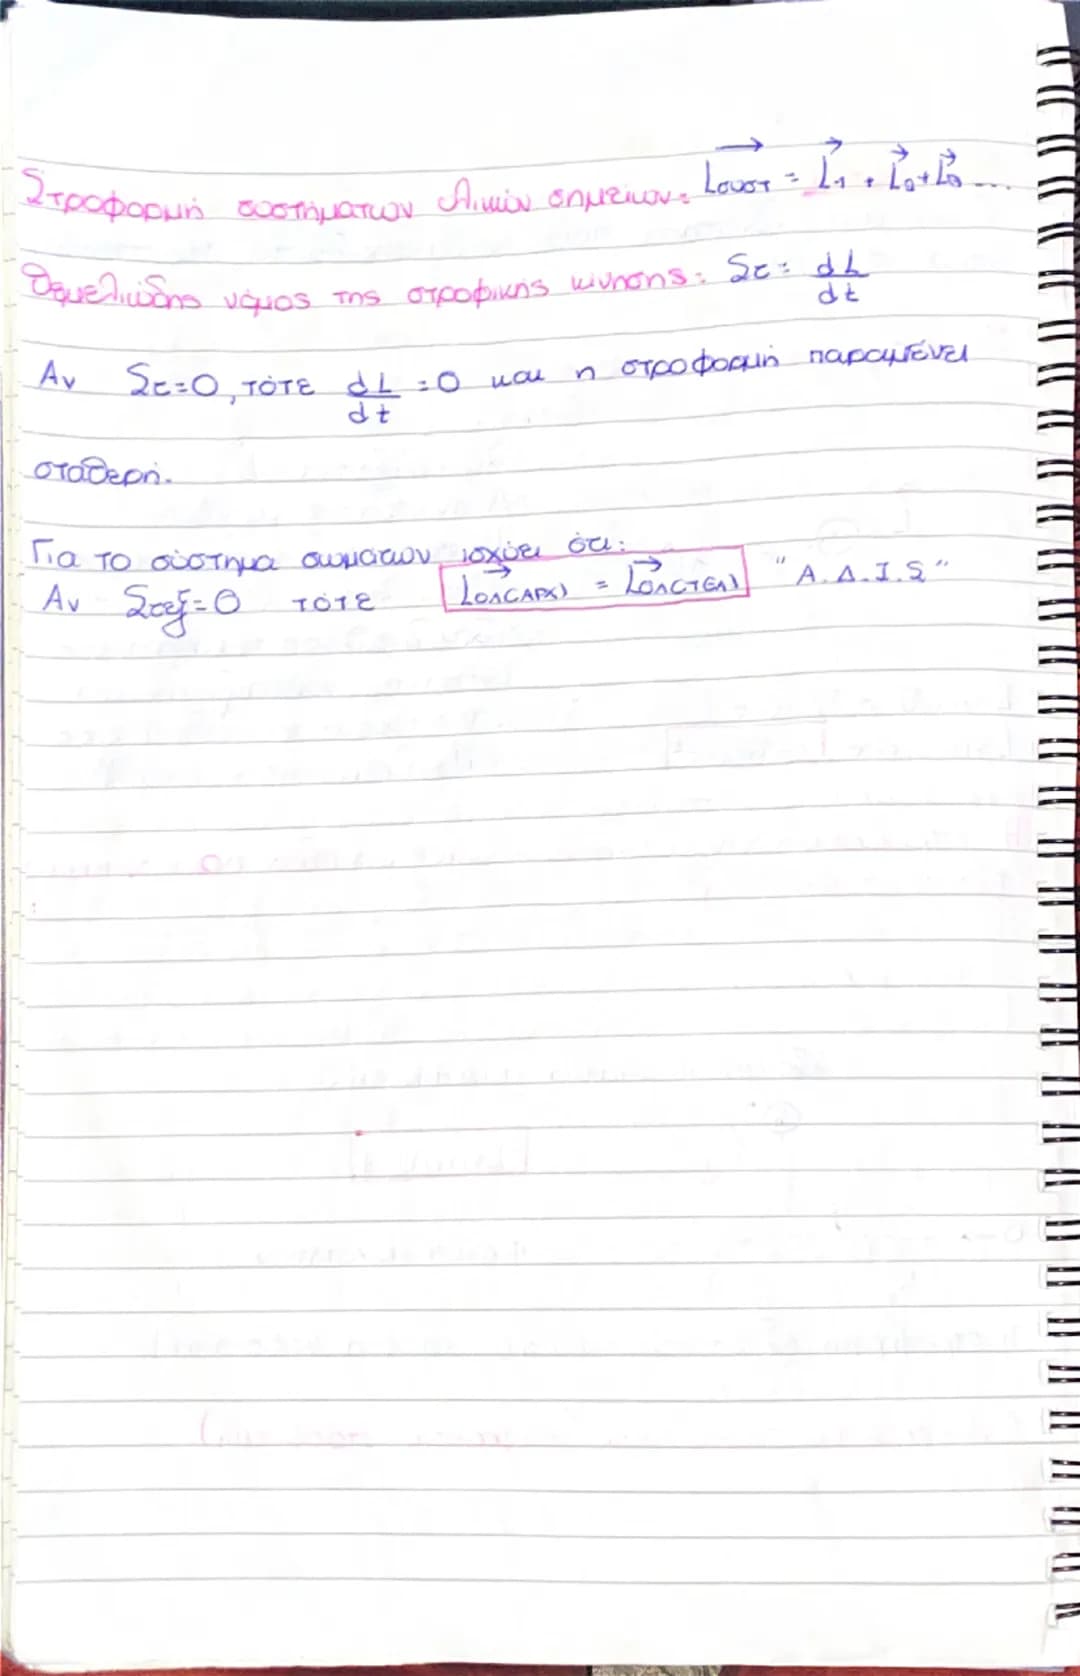 Στροφορμή συστήματων υλικών σημείων: L⃗συστ = L⃗1 + L⃗2 + L⃗3 ...
Θεμελιώδης νόμος της στροφικής κίνησης: Στ = dL/dt
Αν Στ=0, τότε dL/dt = 0 και η στροφορμή παραμένει
σταθερή.
Για το σύστημα σωμάτων ισχύει ότι:
Αν Στεξ=0 τότε L⃗ΟΛ(ΑΡΧ) = L⃗ΟΛ(ΤΕΛ) "Α.Δ.Ι.S"